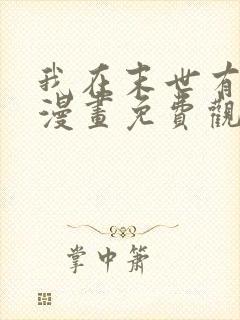 我在末世有
漫畫免費觀
掌中簫